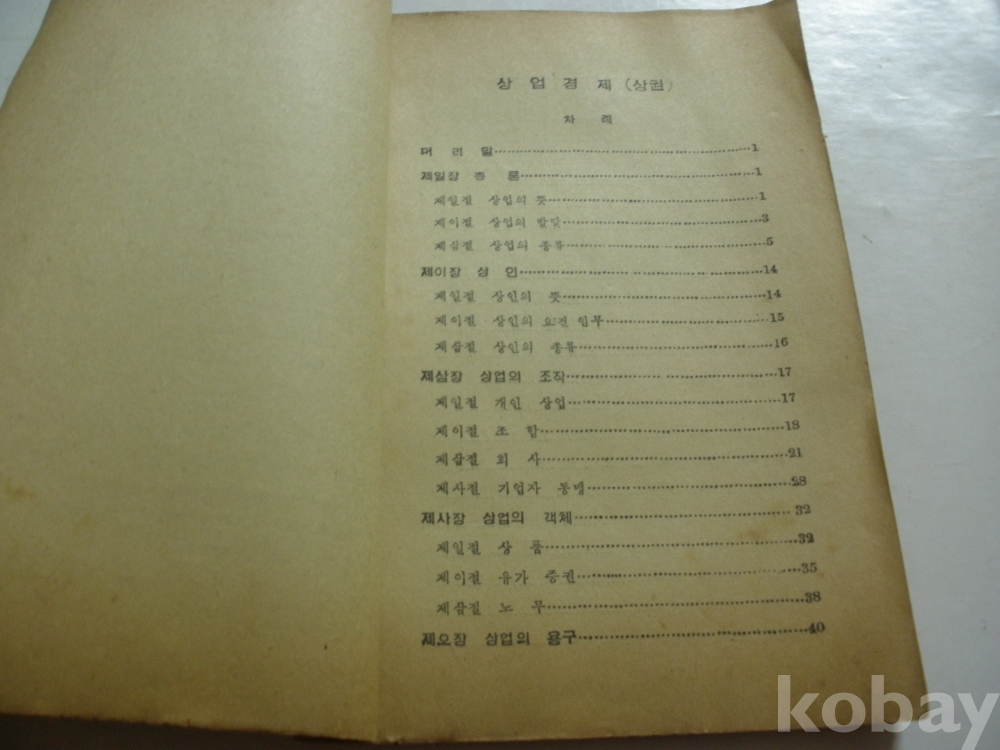 상 업 경 제 (상권)
차 례
머 리 말 1
제일장 총 론 1
제일절 상업의 뜻 1
제이절 상업의 발달 3
제삼절 상업의 종류 5
제이장 상 인 14
제일절 상인의 뜻 14
제이절 상인의 임무 15
제삼절 상인의 종류 16
제삼장 상업의 조직 17
제일절 개인 상업 17
제이절 조 합 18
제삼절 회 사 21
제사절 기업자 동맹 28
제사장 상업의 객체 32
제일절 상 품 32
제이절 유가 증권 35
제삼절 노 무 38
제오장 상업의 용구 40
kobay